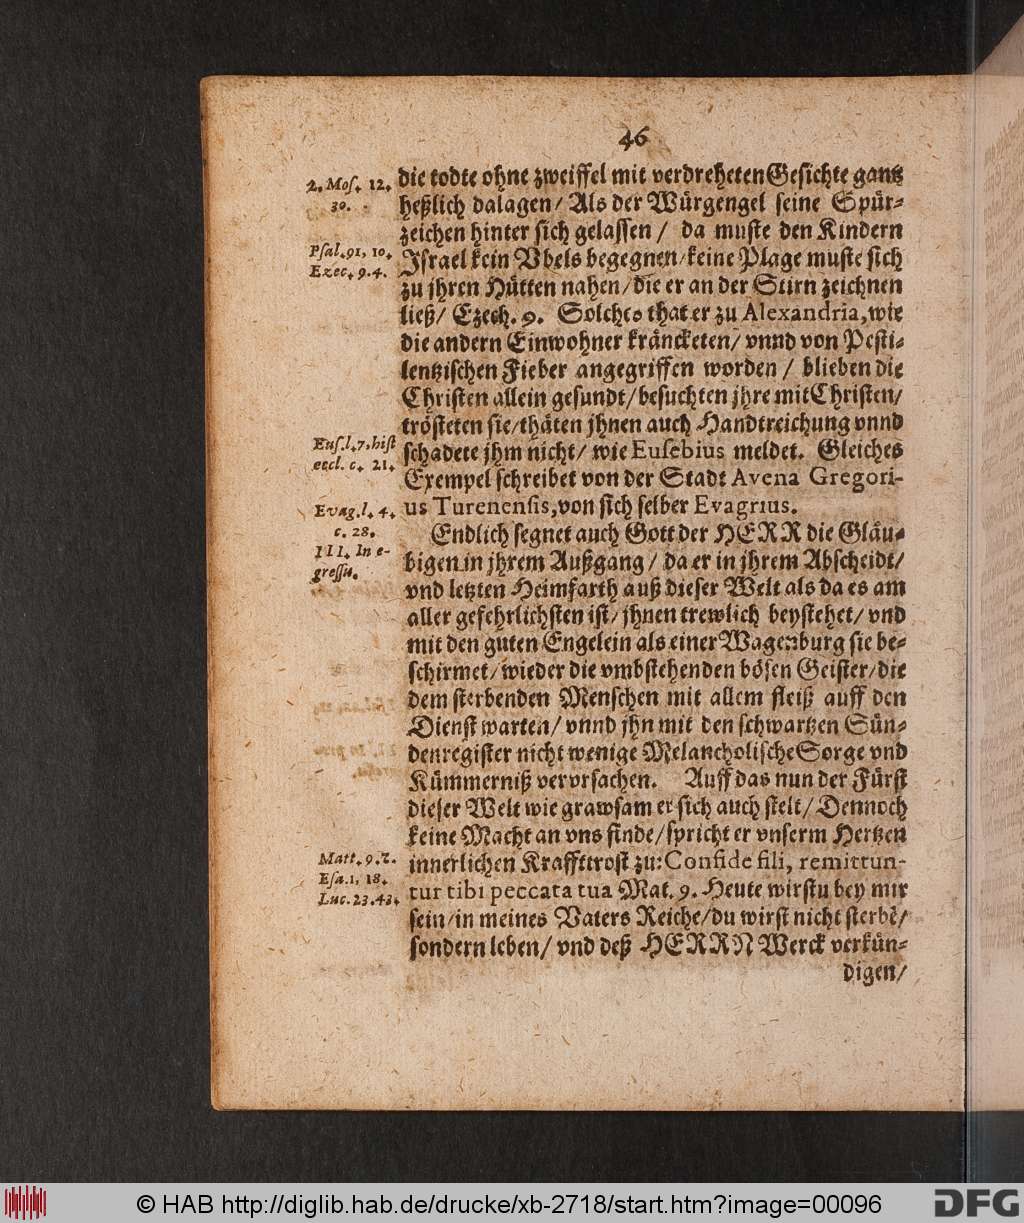 46
2. Mos. 12.
30.
Psal. 91, 10.
Ezec. 9. 4.
Eus. l. 7, hist
eccl. c. 21.
Evag. l. 4.
c. 28.
III. In e-
gressu.
Matt. 9. 2.
Esa. 1, 18.
Luc. 23. 43.
die todte ohne zweiffel mit verdreheten Gesichte gantz
heßlich dalagen/ Als der Würgengel seine Spür-
zeichen hinter sich gelassen/ da muste den Kindern
Israel kein Vbels begegnen/ keine Plage muste sich
zu jhren Hütten nahen/ die er an der Stirn zeichnen
ließ/ Ezech. 9. Solches that er zu Alexandria, wie
die andern Einwohner kräncketen/ vnnd von Pesti-
lentzischen Fieber angegriffen worden/ blieben die
Christen allein gesundt/ besuchten jhre mit Christen/
trösteten sie/ thäten jhnen auch Handtreichung vnnd
schadete jhm nicht/ wie Eusebius meldet. Gleiches
Exempel schreibet von der Stadt Avena Gregori-
us Turenensis, von sich selber Evagrius.
Endlich segnet auch Gott der HERR die Gläu-
bigen in jhrem Außgang/ da er in jhrem Abscheidt/
vnd letzten Heimfarth auß dieser Welt als da es am
aller gefehrlichsten ist/ jhnen trewlich beystehet/ vnd
mit den guten Engelein als einer Wagenburg sie be-
schirmet/ wieder die vmbstehenden bösen Geister/ die
dem sterbenden Menschen mit allem fleiß auff den
Dienst warten/ vnnd jhn mit den schwartzen Sün-
denregister nicht wenige Melancholische Sorge vnd
Kümmerniß vervrsachen. Auff das nun der Fürst
dieser Welt wie grawsam er sich auch stelt/ Dennoch
keine Macht an vns finde/ spricht er vnserm Hertzen
innerlichen Kraffttrost zu: Confide fili, remittun-
tur tibi peccata tua Mat. 9. Heute wirstu bey mir
sein/ in meines Vaters Reiche/ du wirst nicht sterbē/
sondern leben/ vnd deß HERRN Werck verkün-
digen/
© HAB http://diglib.hab.de/drucke/xb-2718/start.htm?image=00096
DFG